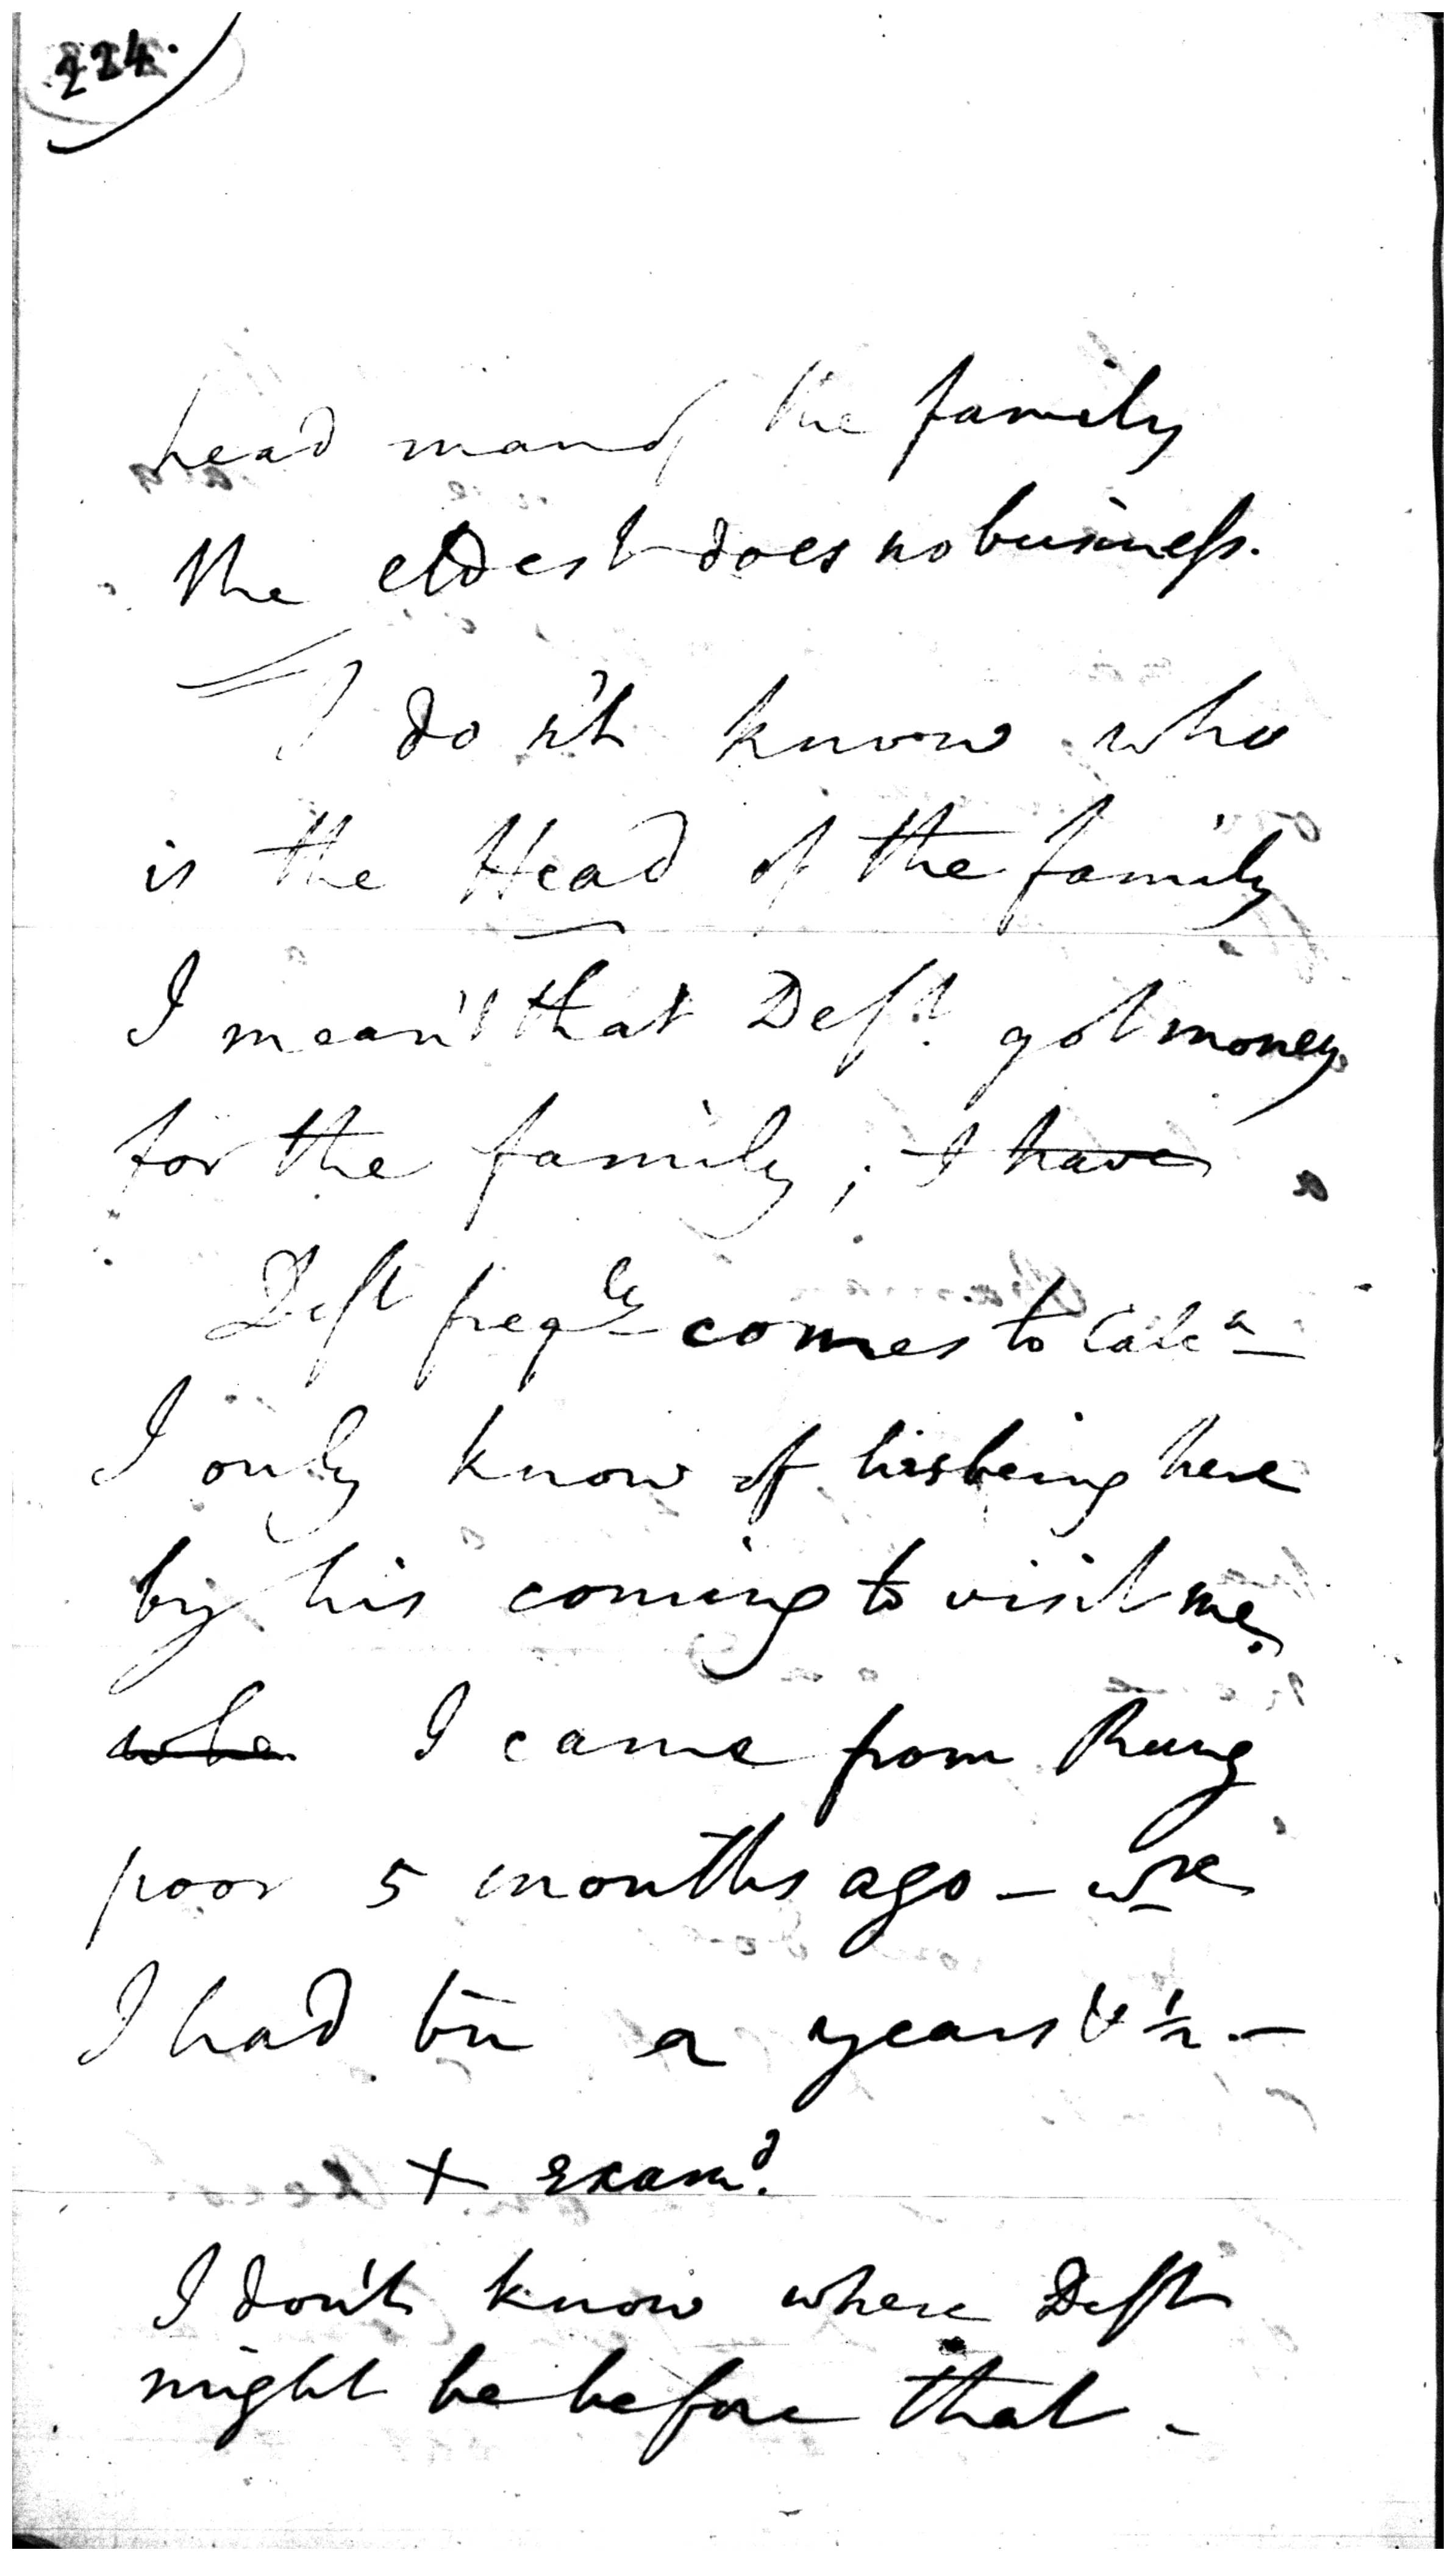 224.
head man of the family
the eldest does no business.
I do n't know who
is the Head of the family
I mean't that Deft. got money
for the family; I have
Deft freqly comes to Calca
I only know of his being here
by his coming to visit me.
when I came from Rung
poor 5 months ago — wre
I had bn a years & ½ —
+ examd.
I don't know where Deft
might be before that —